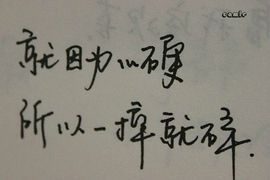 comic
就因为心硬
所以一摔就碎.